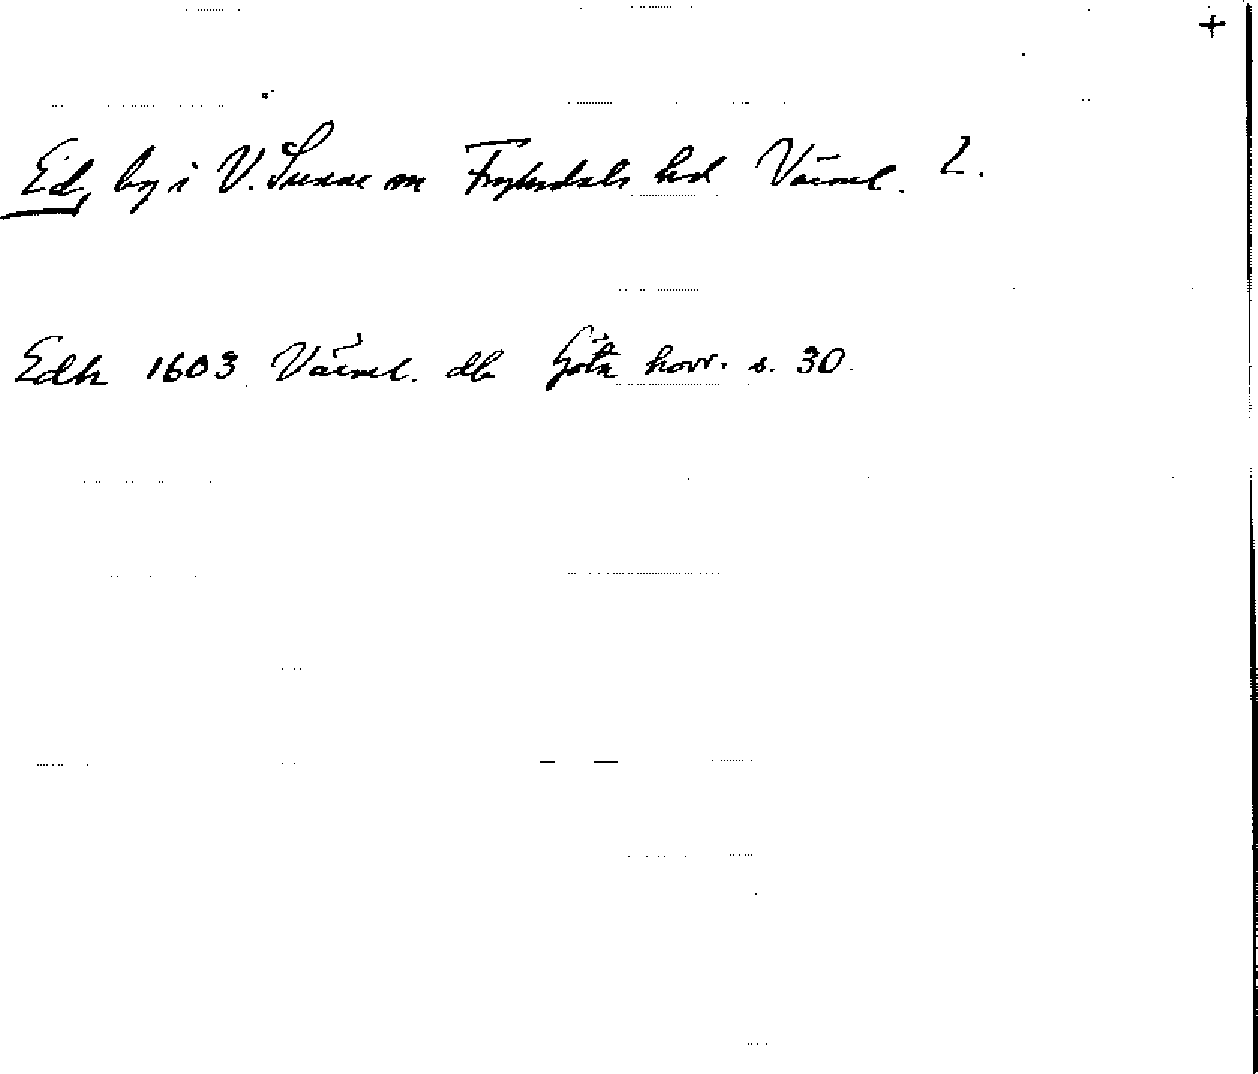 +
Ed, by i V. Sunne sn Fryksdals hd Värml. L.
Edh 1603 Värml. db Göta hovr. s. 30